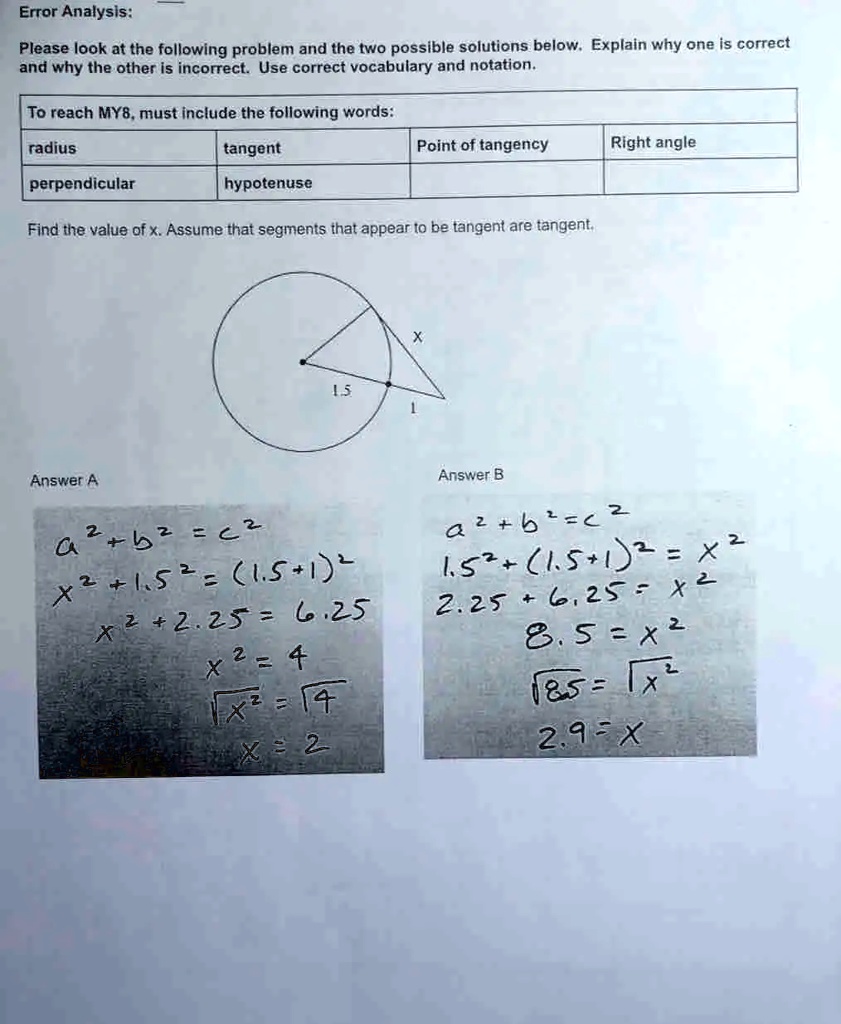 Error Analysis:
Please look at the following problem and the two possible solutions below. Explain why one is correct
and why the other is incorrect. Use correct vocabulary and notation.
To reach MY8, must include the following words:
radius tangent Point of tangency Right angle
perpendicular hypotenuse
Find the value of x. Assume that segments that appear to be tangent are tangent.
x
1.5
1
Answer A
a² + b² = c²
x² + 1.5² = (1.5+1)²
x² + 2.25 = 6.25
x² = 4
√x² = √4
x = 2
Answer B
a² + b² = c²
1.5² + (1.5+1)² = x²
2.25 + 6.25 = x²
8.5 = x²
√8.5 = √x²
2.9 = x